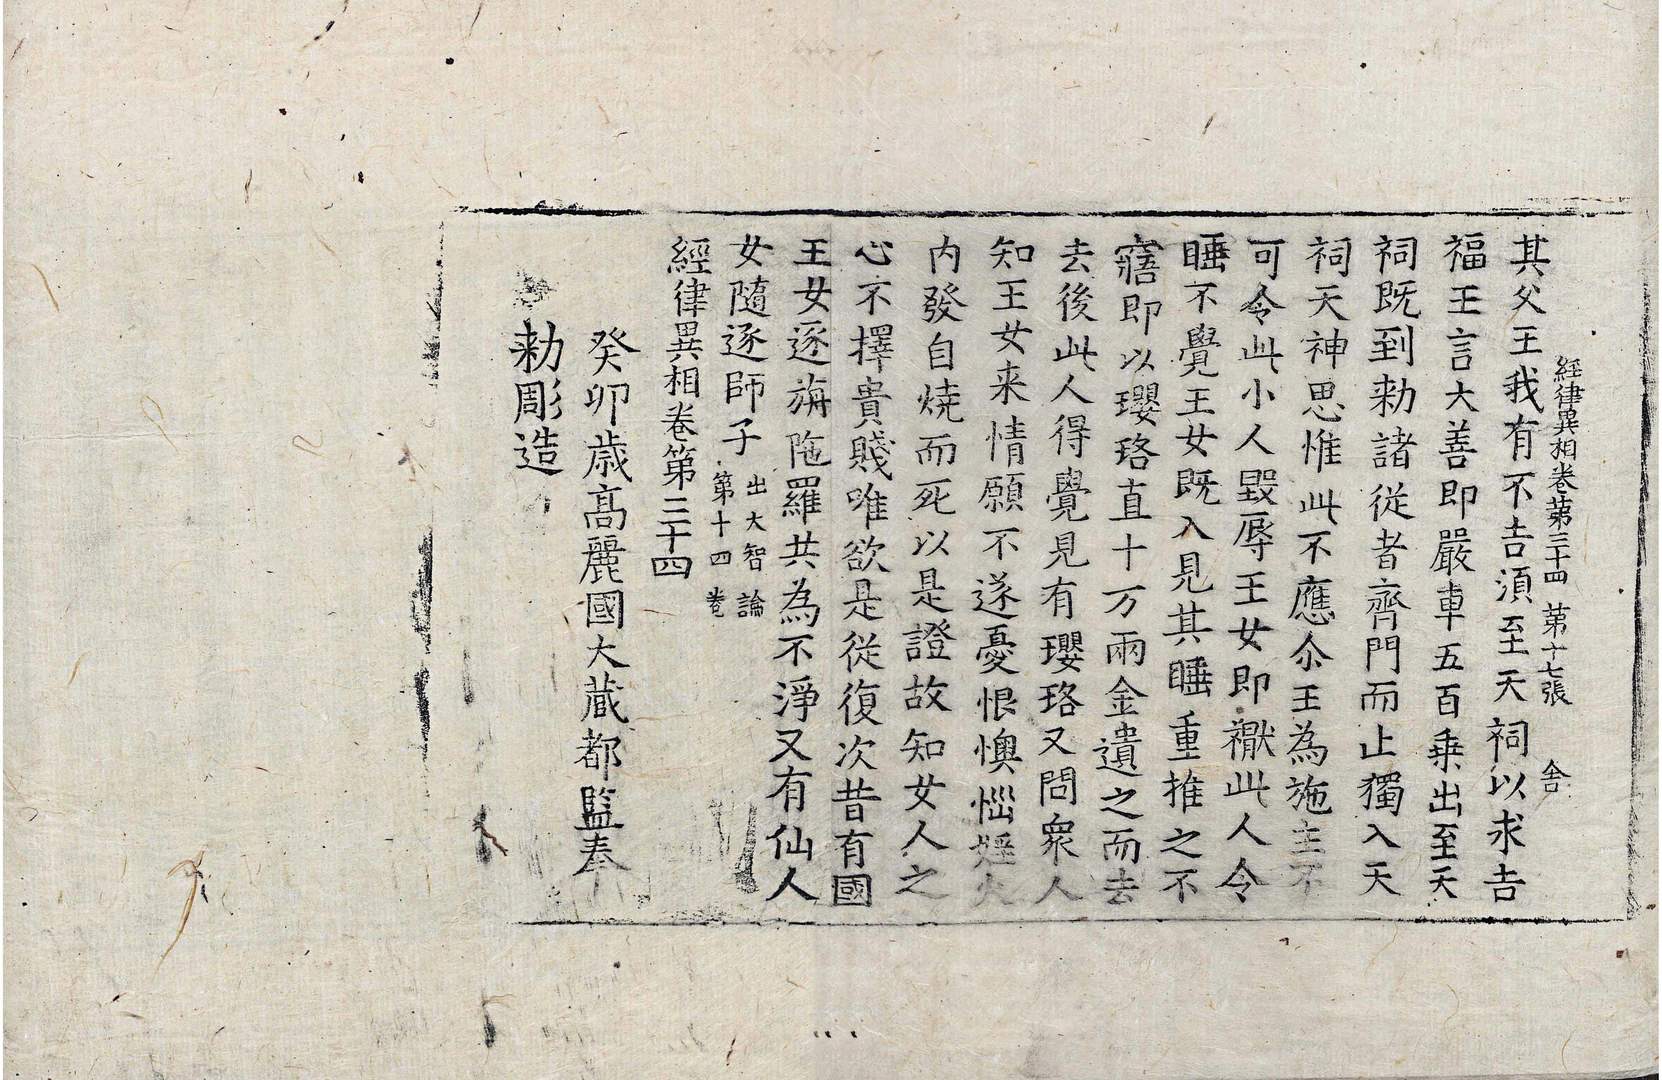 經律異相卷第三十四 第十七張 舍
其父王我有不吉湏至天祠以求吉
福王言大善即嚴車五百乗出至天
祠既到勑諸從者齊門而止獨入天
祠天神思惟此不應尒王為施主不
可令此小人毀辱王女即禳此人令
睡不覺王女既入見其睡重推之不
寤即以瓔珞直十万兩金遺之而去
去後此人得覺見有瓔珞又問衆人
知王女来情願不遂憂恨懊惱婬火
内發自燒而死以是證故知女人之
心不擇貴賤唯欲是從復次昔有國
王女逐旃陁羅共為不淨又有仙人
女隨逐師子 出大智論
第十四卷
經律異相卷第三十四
癸卯歳高麗國大藏都監奉
勑彫造